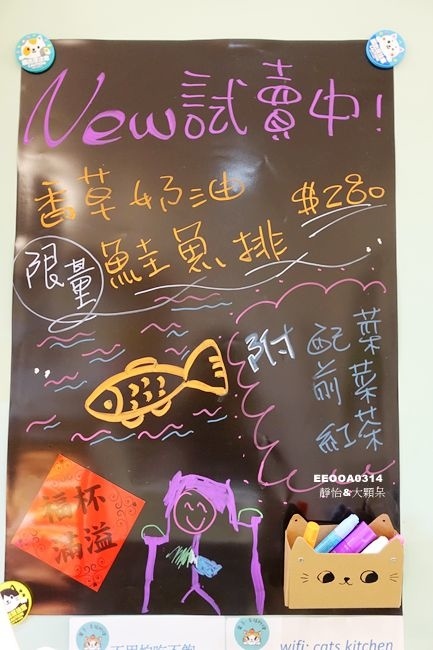 New試賣中!
香草奶油 $280
限量 鮭魚排
附 配菜
前菜
紅茶
EEOOA0314
靜怡&大顆呆
福杯
滿溢
不思怕吃不飽
wifi: cats kitchen